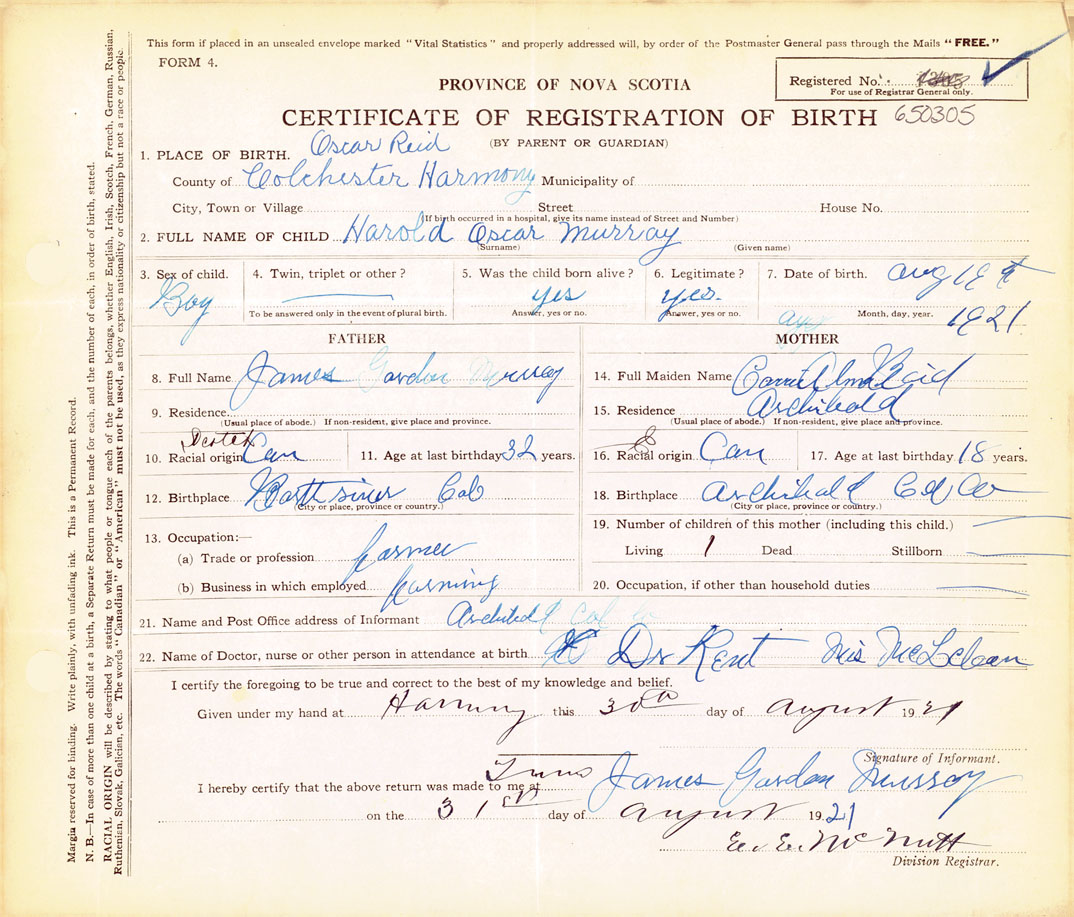 This form if placed in an unsealed envelope marked "Vital Statistics" and properly addressed will, by order of the Postmaster General pass through the Mails "FREE."
FORM 4.
Registered No.
For use of Registrar General only.
PROVINCE OF NOVA SCOTIA
CERTIFICATE OF REGISTRATION OF BIRTH 650305
(BY PARENT OR GUARDIAN)
Oscar Reid
1. PLACE OF BIRTH.
County of Colchester Harmony Municipality of
City, Town or Village Street House No.
(If birth occurred in a hospital, give its name instead of Street and Number)
2. FULL NAME OF CHILD Harold Oscar Murray
(Surname) (Given name)
3. Sex of child. Boy
4. Twin, triplet or other?
To be answered only in the event of plural birth.
5. Was the child born alive? yes
Answer, yes or no.
6. Legitimate? yes.
Answer, yes or no.
7. Date of birth. Aug 19th
Month, day, year. 1921
aug
FATHER
8. Full Name James Gordon Murray
9. Residence
(Usual place of abode.) If non-resident, give place and province.
Scotch
10. Racial origin Can 11. Age at last birthday 32 years.
12. Birthplace Col
(City or place, province or country.)
13. Occupation:—
(a) Trade or profession farmer
(b) Business in which employed farming
MOTHER
14. Full Maiden Name Carrie Alma Reid
15. Residence Archibald
(Usual place of abode.) If non-resident, give place and province.
16. Racial origin Can 17. Age at last birthday 18 years.
18. Birthplace Archibald Col Co
(City or place, province or country.)
19. Number of children of this mother (including this child.)
Living 1 Dead Stillborn
20. Occupation, if other than household duties
21. Name and Post Office address of Informant Archibald Col Co
22. Name of Doctor, nurse or other person in attendance at birth Dr Kent Mis McLelean
I certify the foregoing to be true and correct to the best of my knowledge and belief.
Given under my hand at Harmony this 30th day of August 1921
Signature of Informant.
James Gordon Murray
I hereby certify that the above return was made to me at Truro
on the 31st day of August 1921
E. E. McNutt
Division Registrar.
Margin reserved for binding. Write plainly, with unfading ink. This is a Permanent Record.
N. B.—In case of more than one child at a birth, a Separate Return must be made for each, and the number of each, in order of birth, stated.
RACIAL ORIGIN will be described by stating to what people or tongue each of the parents belongs, whether English, Irish, Scotch, French, German, Russian,
Ruthenian, Slovak, Galician, etc. The words "Canadian" or "American" must not be used, as they express nationality or citizenship but not a race or people.